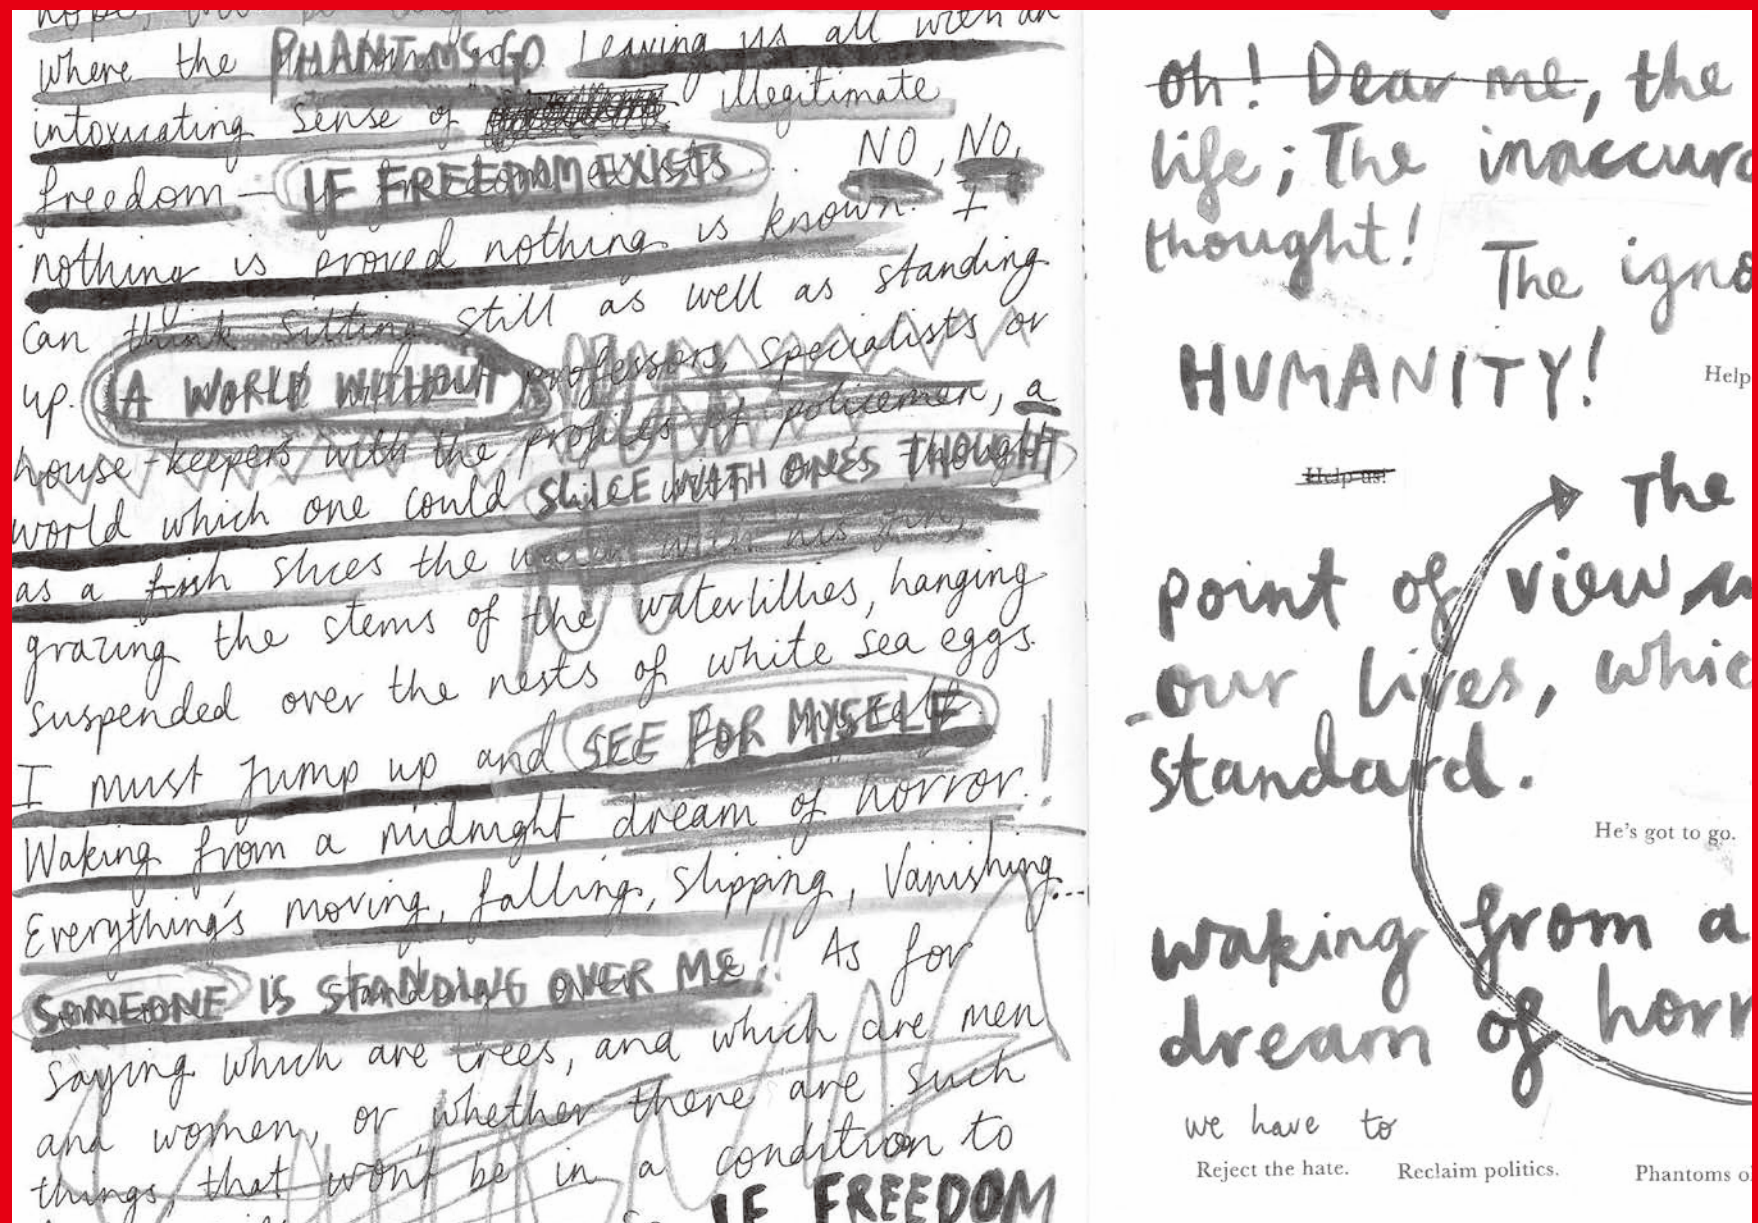 where the PHANTOMS GO Leaving us all with an
intoxicating sense of illegitimate
freedom – IF FREEDOM EXISTS... NO, NO,
nothing is proved nothing is known. I
can think sitting still as well as standing
up. A WORLD WITHOUT professors, specialists or
house-keepers with the profiles of policemen, a
world which one could SLICE WITH ONE'S THOUGHT
as a fish slices the water with his fin,
grazing the stems of the waterlillies, hanging
suspended over the nests of white sea eggs.
I must jump up and SEE FOR MYSELF
Waking from a midnight dream of horror!
Everything's moving, falling, slipping, Vanishing...
SOMEONE IS STANDING OVER ME!! As for
saying which are trees, and which are men
and women, or whether there are such
things, that won't be in a condition to
IF FREEDOM
oh! Dear me, the
life; The inaccura
thought!
The igno
HUMANITY!
Help
Help us!
The
point of view
our lives, whic
standard.
He's got to go.
waking from a
dream of horr
we have to
Reject the hate. Reclaim politics. Phantoms o